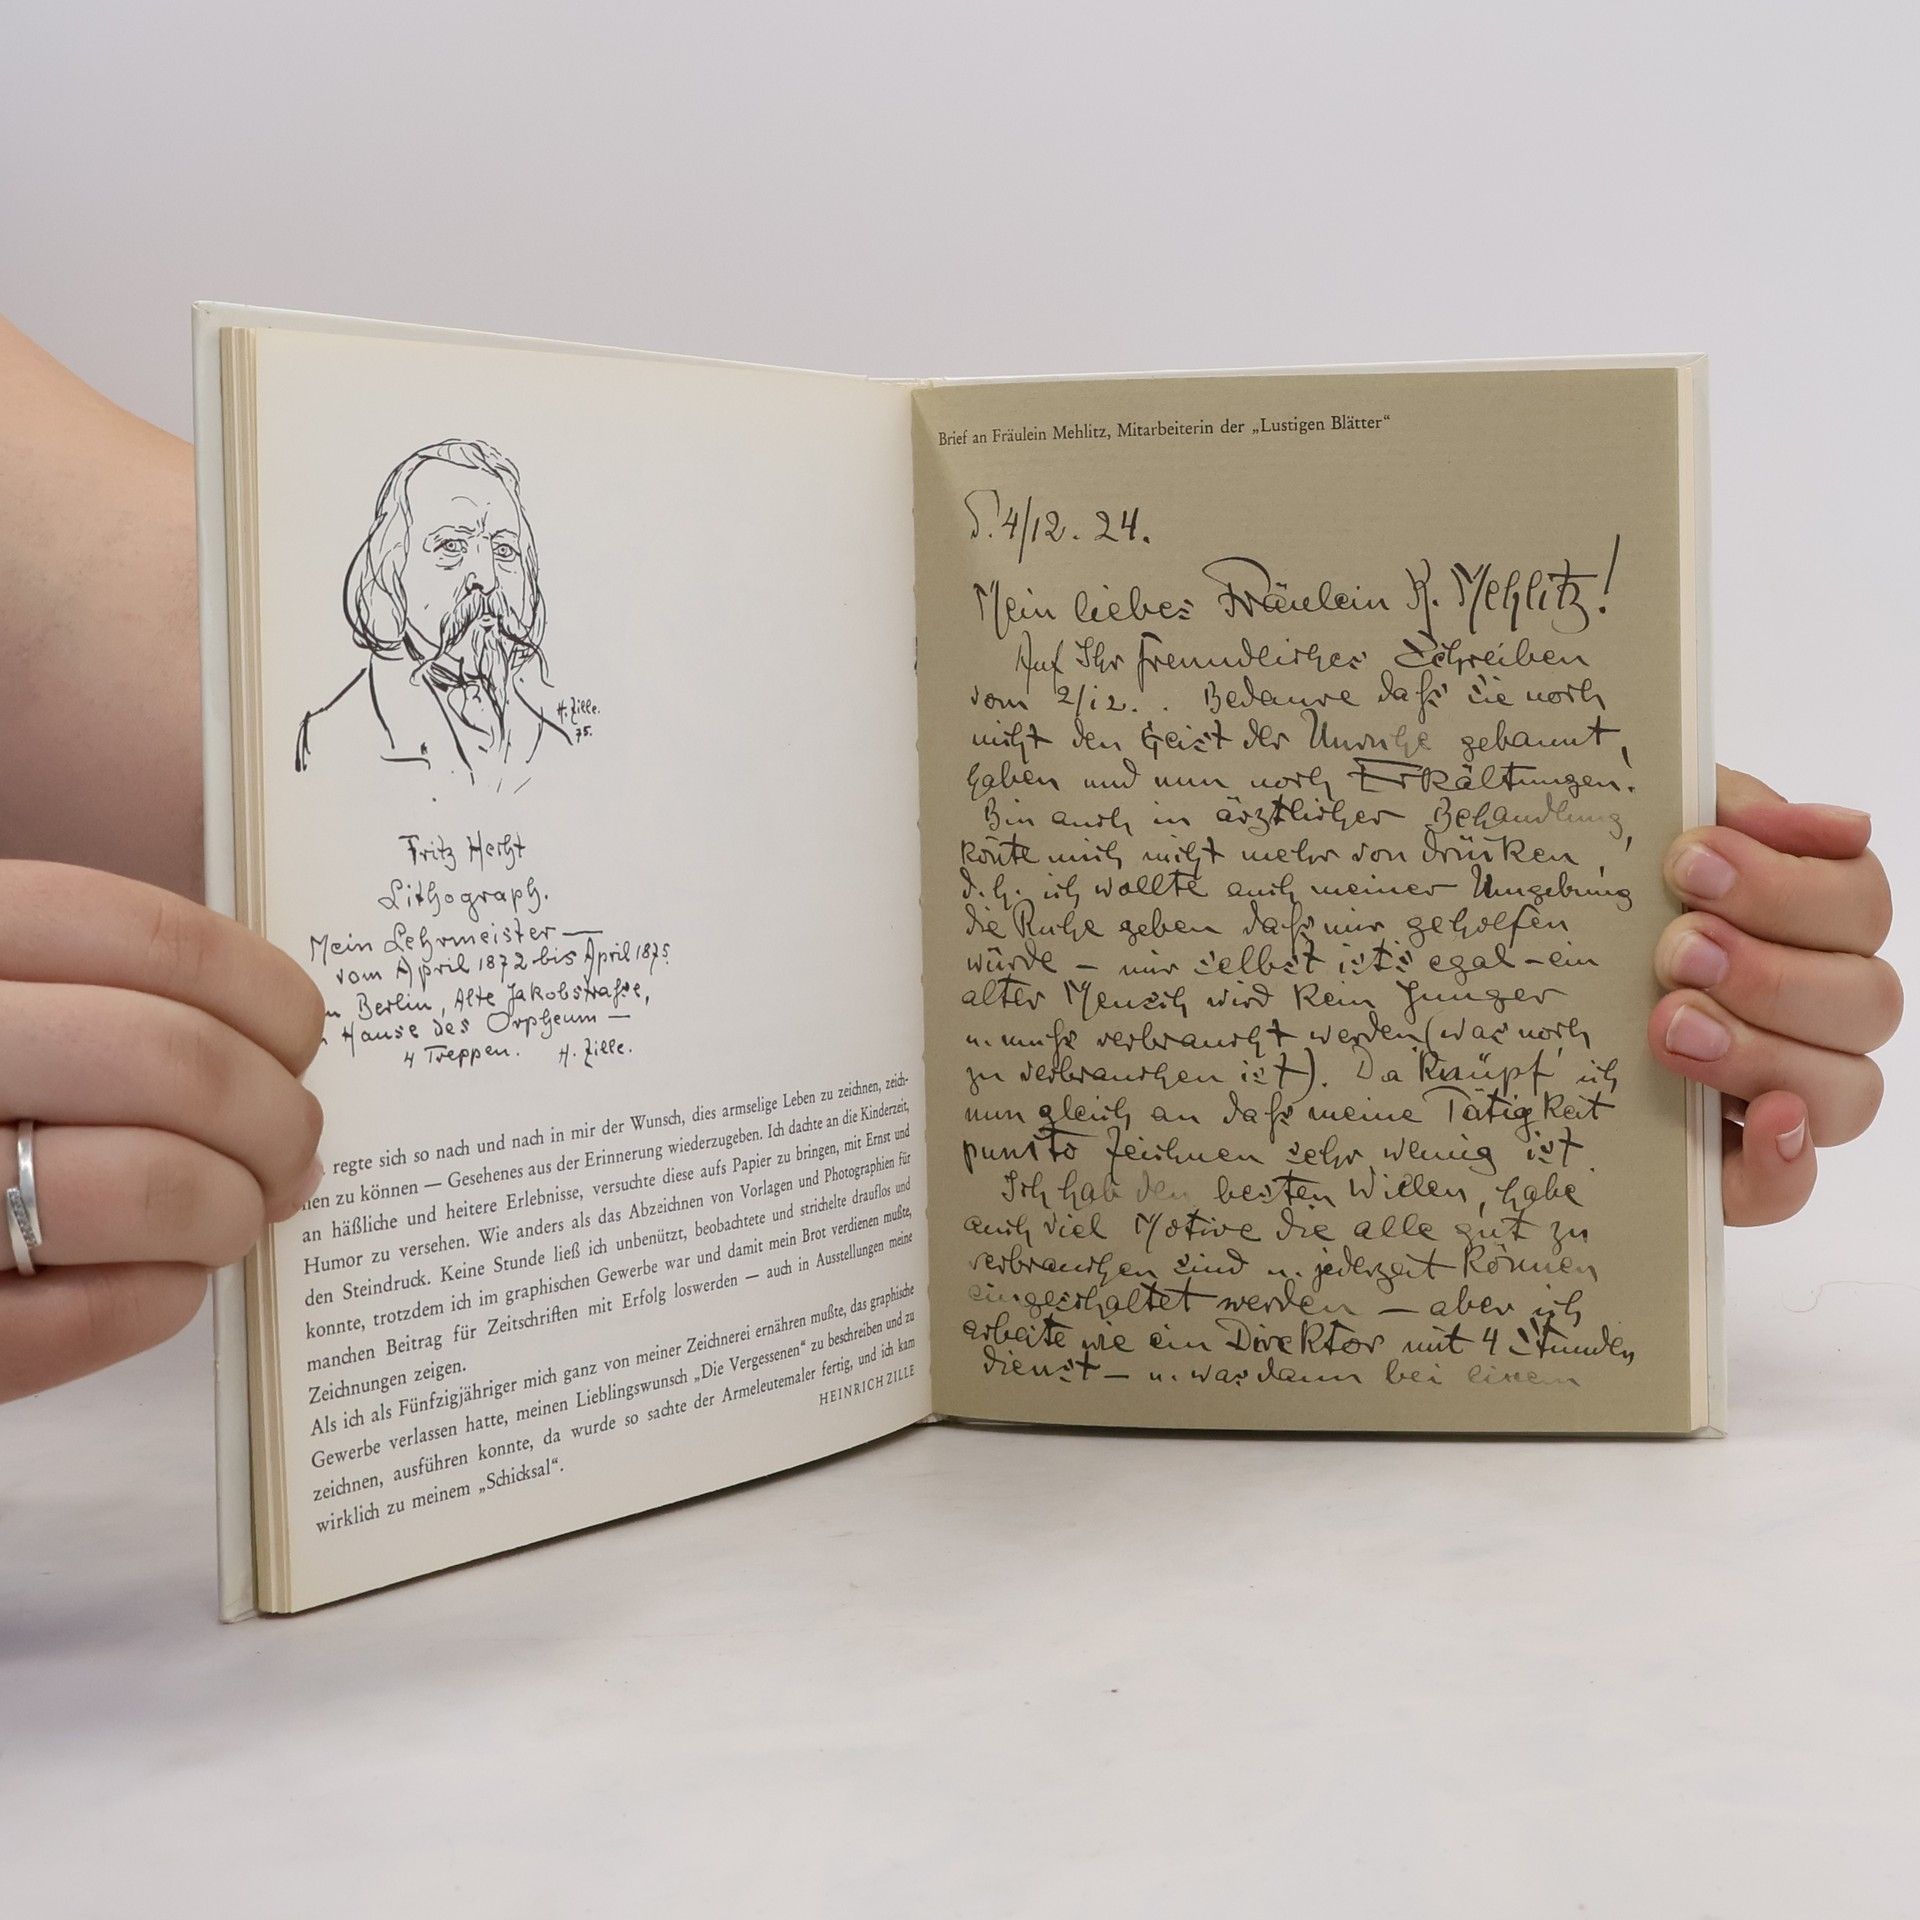 H. Zille.
75.
Fritz Hecht
Lithograph.
Mein Lehrmeister —
vom April 1872 bis April 1875
n Berlin, Alte Jakobstraße,
Hause des Orpheum —
4 Treppen. H. Zille.
regte sich so nach und nach in mir der Wunsch, dies armselige Leben zu zeichnen, zeich-
nen zu können — Gesehenes aus der Erinnerung wiederzugeben. Ich dachte an die Kinderzeit,
an häßliche und heitere Erlebnisse, versuchte diese aufs Papier zu bringen, mit Ernst und
Humor zu versehen. Wie anders als das Abzeichnen von Vorlagen und Photographien für
den Steindruck. Keine Stunde ließ ich unbenützt, beobachtete und strichelte drauflos und
konnte, trotzdem ich im graphischen Gewerbe war und damit mein Brot verdienen mußte,
manchen Beitrag für Zeitschriften mit Erfolg loswerden — auch in Ausstellungen meine
Zeichnungen zeigen.
Als ich als Fünfzigjähriger mich ganz von meiner Zeichnerei ernähren mußte, das graphische
Gewerbe verlassen hatte, meinen Lieblingswunsch „Die Vergessenen“ zu beschreiben und zu
zeichnen, ausführen konnte, da wurde so sachte der Armeleutemaler fertig, und ich kam
wirklich zu meinem „Schicksal“.
HEINRICH ZILLE
Brief an Fräulein Mehlitz, Mitarbeiterin der „Lustigen Blätter“
4/12. 24.
Mein liebes Fräulein K. Mehlitz!
Auf Ihr freundliches Schreiben
vom 2/12. . Bedaure daß Sie noch
nicht den Geist der Unruhe gebannt,
haben und nun noch Erkältungen.
Bin auch in ärztlicher Behandlung,
konte mich nicht mehr von drücken,
d. h. ich wollte auch meiner Umgebung
die Ruhe geben daß mir geholfen
würde – mir selbst ists egal – ein
alter Mensch wird kein Junger
u. muß verbraucht werden (was noch
zu verbrauchen ist). Da knüpf ich
nun gleich an daß meine Tätigkeit
punkto Zeichnen sehr wenig ist
Ich hab den besten Willen, habe
auch viel Motive die alle gut zu
verbrauchen sind u. jederzeit können
eingeschaltet werden – aber ich
arbeite wie ein Direktor mit 4 Stunden
dienst – u. was dann bei einem